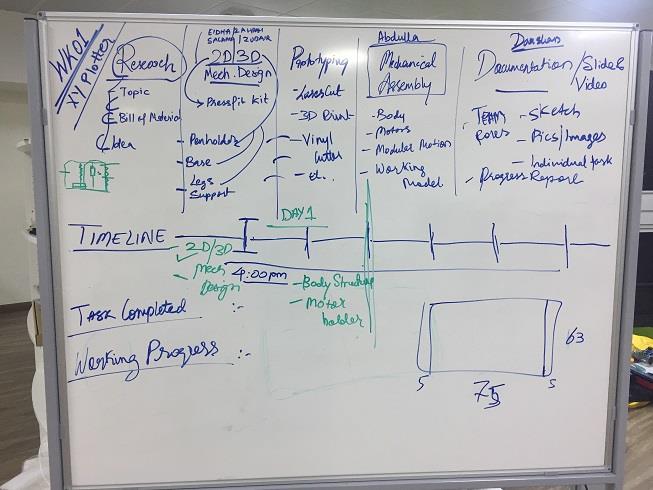 WK01
XY Plotter
Research
Topic
Bill of Material
Idea
2D/3D
Mech. Design
PressFit Kit
Penholder
Base
Legs
Support
Prototyping
LaserCut
3D Print
Vinyl
cutter
Abdulla
Mechanical
Assembly
Body
Motors
Modular Motion
Working
Model
Darshan
Documentation/Slides
Video
TEAM
Sketch
Pics/Images
Individual task
Progress Report
TIMELINE
DAY 1
2D/3D
Mech
Design
4:00pm
Body Structure
Motor
holder
TASK COMPLETED :-
Working Progress :-
63
5
75
5